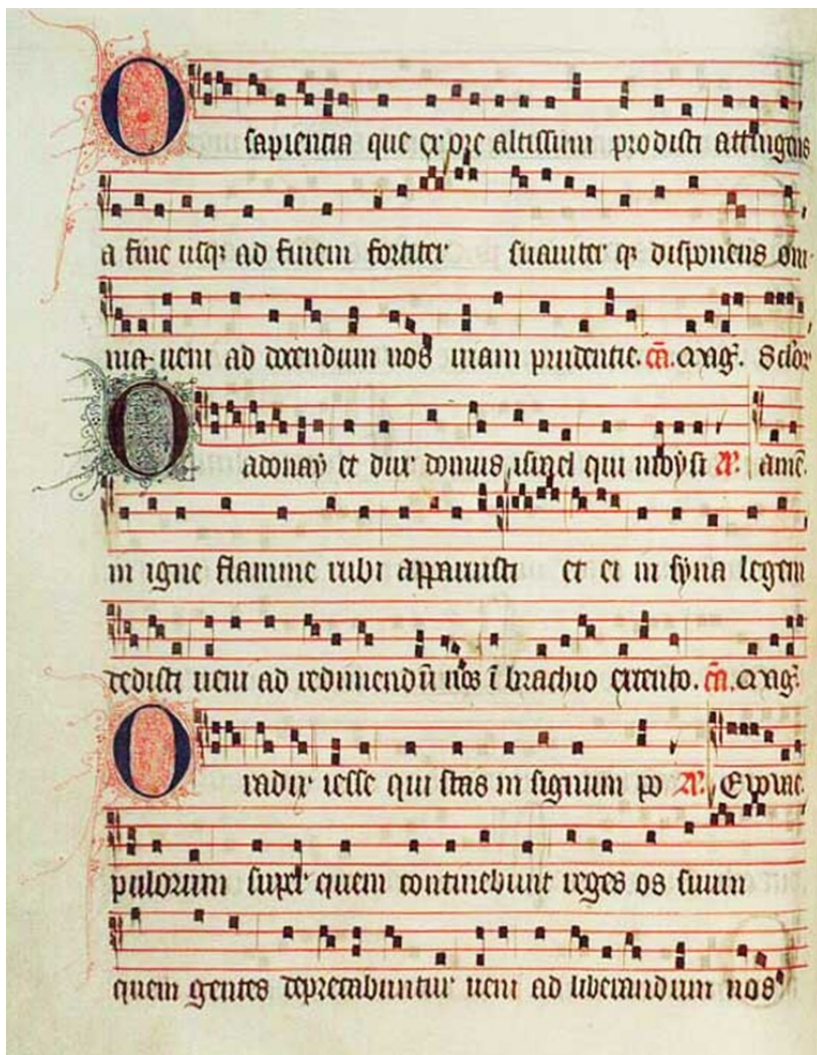 O sapiencia que ex ore altissimi prodisti attingens
a fine usq; ad finem fortiter suauiter q; disponens om
nia ueni ad docendum nos uiam prudencie. Mag̃.
O adonay et dux domus israel qui moysi amē.
in igne flamme rubi apparuisti et ei in syna legem
dedisti ueni ad redimendū nos ī brachio extento. Mag̃.
O radix iesse qui stas in signum po
pulorum super quem continebunt reges os suum
quem gentes deprecabuntur ueni ad liberandum nos